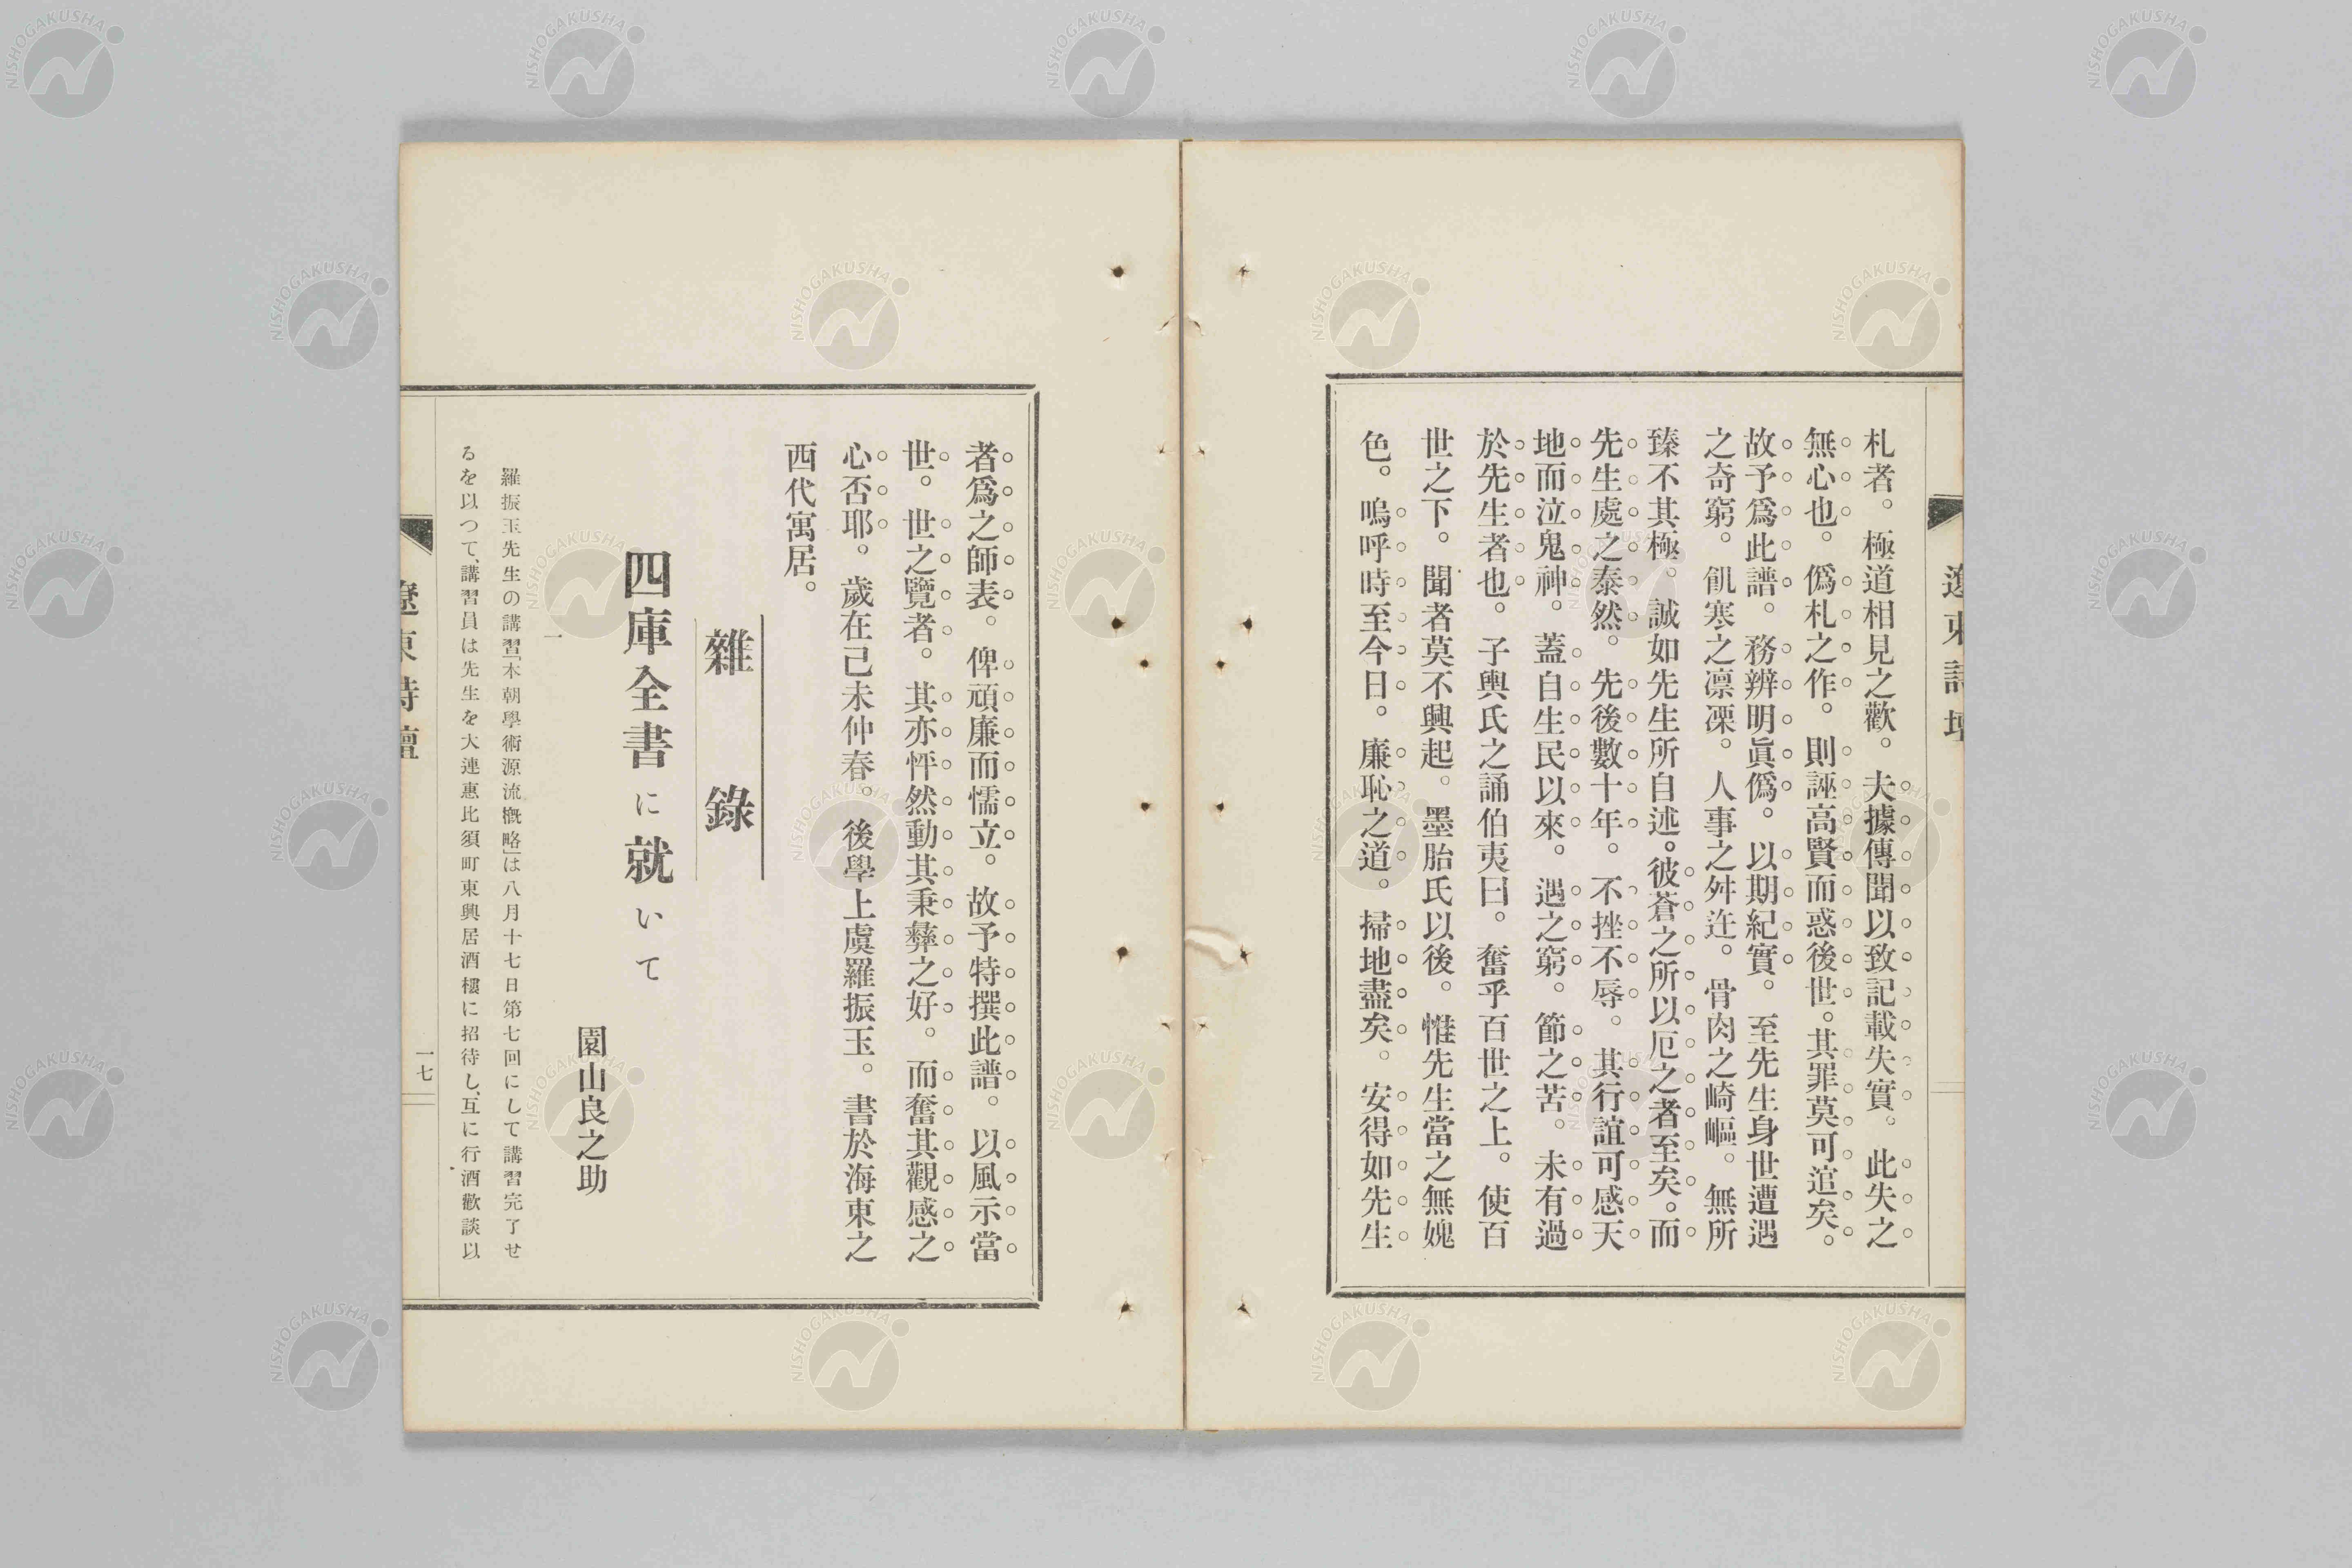 遼東詩壇
札者。極道相見之歡。夫據傳聞以致記載失實。此失之
無心也。僞札之作。則誣高賢而惑後世。其罪莫可逭矣。
故予爲此譜。務辨明眞僞。以期紀實。至先生身世遭遇
之奇窮。飢寒之凛凓。人事之舛迕。骨肉之崎嶇。無所
臻不其極。誠如先生所自述。彼蒼之所以厄之者至矣。而
先生處之泰然。先後數十年。不挫不辱。其行誼可感天
地而泣鬼神。蓋自生民以來。遇之窮。節之苦。未有過
於先生者也。子輿氏之誦伯夷曰。奮乎百世之上。使百
世之下。聞者莫不興起。墨胎氏以後。惟先生當之無媿
色。嗚呼時至今日。廉恥之道。掃地盡矣。安得如先生
者爲之師表。俾頑廉而懦立。故予特撰此譜。以風示當
世。世之覽者。其亦怦然動其秉彝之好。而奮其觀感之
心否耶。歲在己未仲春。後學上虞羅振玉。書於海東之
西代寓居。
雜錄
四庫全書に就いて
園山良之助
一
羅振玉先生の講習「本朝學術源流槪略」は八月十七日第七回にして講習完了せ
るを以つて、講習員は先生を大連惠比須町東興居酒樓に招待し、互に行酒歡談以
遼東詩壇
一七
NISHOGAKUSHA